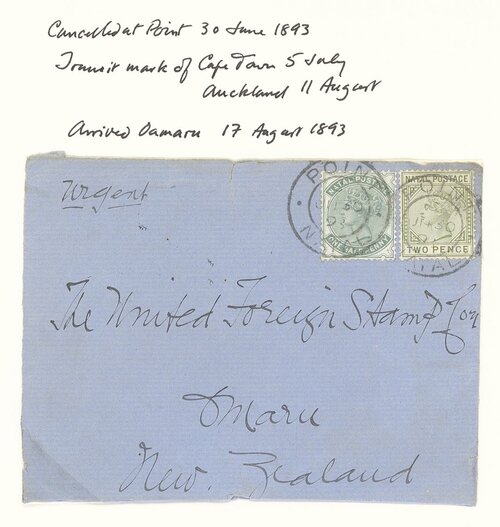 Cancelled at Point 30 June 1893
Transit mark of Cape Town 5 July
Auckland 11 August
Arrived Oamaru 17 August 1893
Urgent
POINT
NATAL
NATAL POSTAGE
TWO PENCE
The United Foreign Stamp Coy
Omaru
New. Zealand